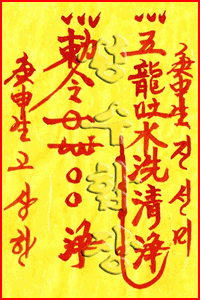 庚申生 진선미
五龍吐水洗清淨
勅令 淨
庚申生 고상한